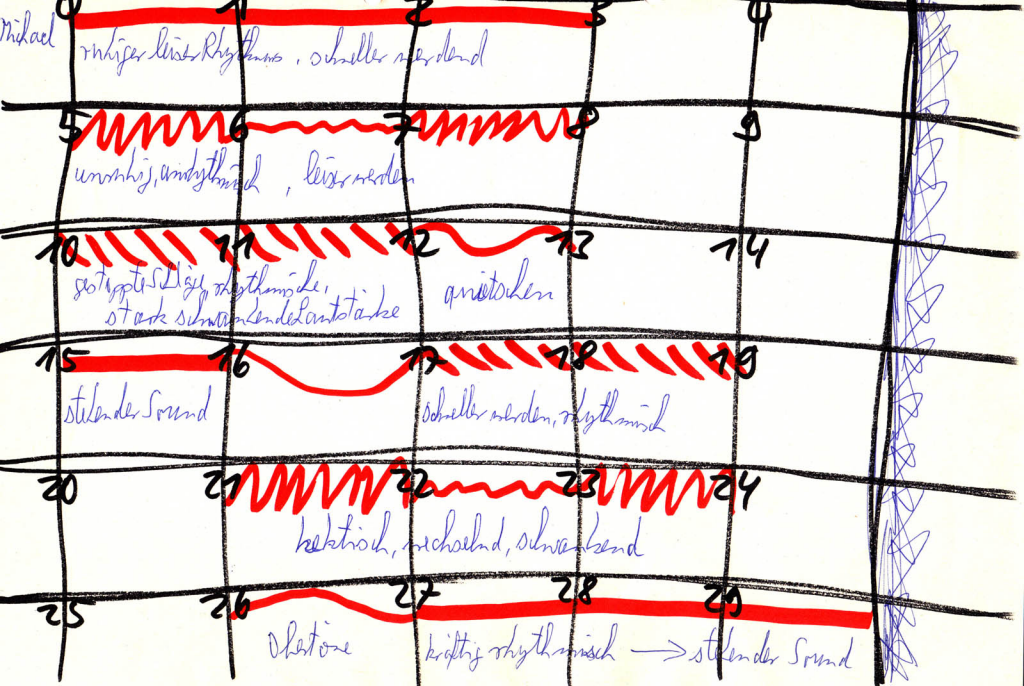 0 1 2 3 4
Michael
ruhiger leiser Rhythmus, schneller werdend
5 6 7 8 9
unruhig, , leiser werden
10 11 12 13 14
gestoppte Schläge, rhythmische, quietschen
stark schwankende Lautstärke
15 16 17 18 19
stehender Sound schneller werden, rhythmisch
20 21 22 23 24
hektisch, wechselnd, schwankend
25 26 27 28 29
Obertöne kräftig rhythmisch → stehender Sound